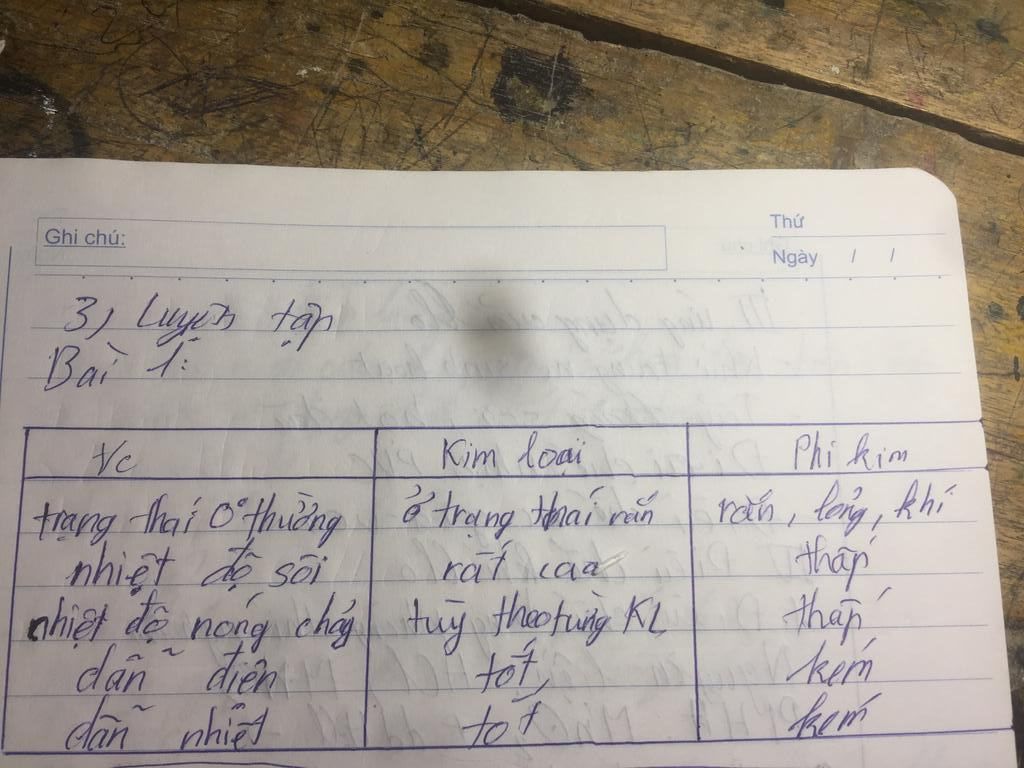 Thứ
Ghi chú:
Ngày / /
3) Luyện tập
Bài 1:
Vc Kim loại Phi kim
trạng thái ở thường ở trạng thái rắn rắn, lỏng, khí
nhiệt độ sôi rất cao thấp
nhiệt độ nóng chảy tùy theo từng KL thấp
dẫn điện tốt, kém
dẫn nhiệt tốt kém